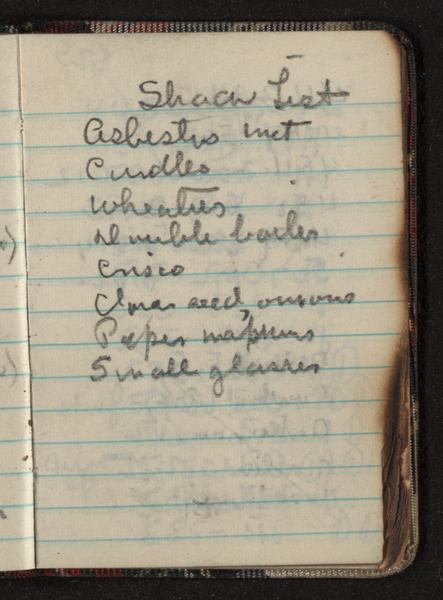 Shack List
Asbestos mt
Candles
Wheaties
Double boiler
Crisco
seed, onions
Paper napkins
Small glasses